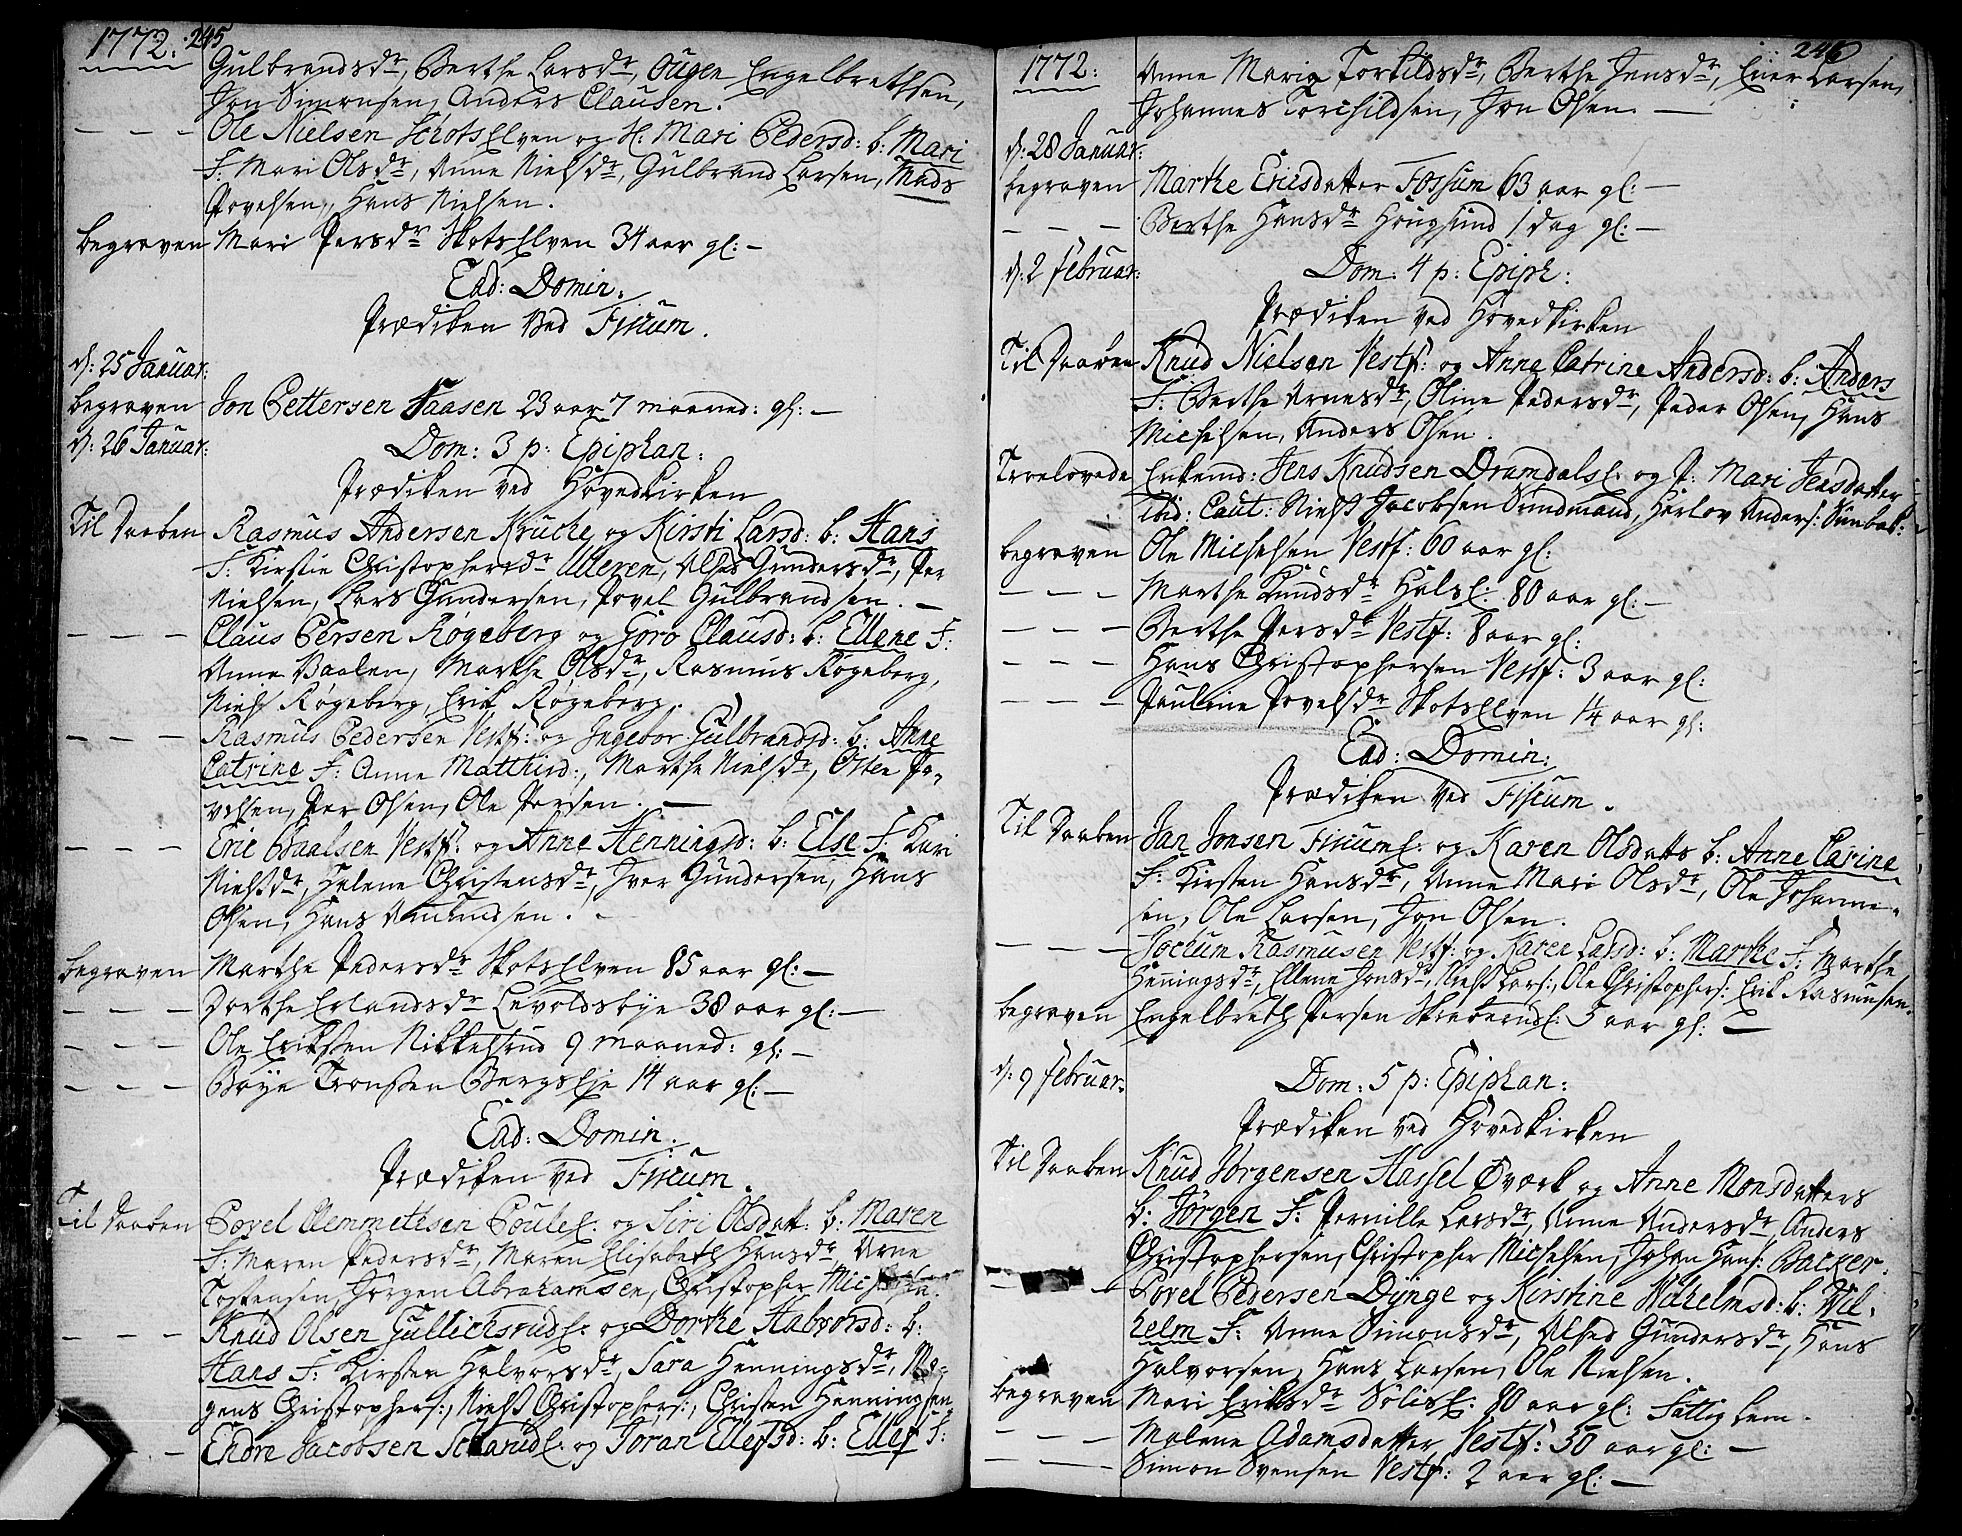 1772. 245
Gulbrandsdr, Berthe Larsdr, Ougen Engelbrethsen,
Jon Simonsen, Anders Clausen.
— — — Ole Nielsen SkotsElven og H: Mari Pedersd: b: Mari
F: Mari Olsdr, Anne Nielsdr, Gulbrand Larsen, Mads
Povelsen, Hans Nielsen.
begraven Mari Persdr SkotsElven 34 aar gl: —
Ead: Domin:
Prædiken Ved Fiscum.
d: 25 Januar:
begraven Jon Pettersen Aasen 23 aar 7 maaned: gl: —
d: 26 Januar: Dom: 3 p: Epiphan:
Prædiken ved Hovedkirken
Til Daaben Rasmus Andersen Krucke og Kirsti Larsd: b: Hans
F: Kirstie Christophersdr Ulleren, Alhed Gundersdr, Per
Nielsen, Lars Gundersen, Povel Gulbrandsen. —
— — — Claus Persen Røgeberg og Goro Clausd: b: Ellene F:
Anne Baalen, Marthe Olsdr, Rasmus Røgeberg,
Niels Røgeberg, Erik Røgeberg.
— — — Rasmus Pedersen Vestf: og Ingebor Gulbrandsd: b: Anne
Catrine F: Anne Matthisd:, Marthe Nielsdr, Osten Po-
velsen, Per Olsen, Ole Persen. —
— — — Eric Paalsen Vestf: og Anne Henningsd: b: Else F: Kari
Nielsdr, Helene Christensdr, Iver Gundersen, Hans
Olsen, Hans Amundsen. —
begraven Marthe Pedersdr SkotsElven 85 aar gl: —
— — — Dorthe Erlandsdr Levoldsbye 38 aar gl: —
— — — Ole Eriksen Nikkelsrud 9 maaned: gl: —
— — — Børje Tronsen BergsEje 14 aar gl: —
Ead: Domin.
Prædiken ved Fiscum.
Til Daaben Povel Clemmetsen PouleE: og Siri Olsdatt: b: Maren
F: Maren Pedersdr, Maren Elisabeth Hansdr, Arne
Tostensen, Jørgen Abrahamsen, Christopher Michelsen.
— — — Knud Olsen GullichsrudE: og Dorthe Halvorsd: b:
Hans F: Kirsten Halvorsdr, Sara Henningsdr, Mo-
gens Christophers:, Niels Christophers:, Christen Henningsen,
— Endre Jacobsen E: og Joran Ellefsd: b: Ellef F:
1772: 246
Anne Maria Torkildsdr, Berthe Jensdr, Ener Larsen,
Johannes Torchildsen, Jon Olsen. —
d: 28 Januar:
begraven Marthe Ericsdatter Fossum 63 aar gl: —
— — — Berthe Hansdr Hougsund 1 dag gl: —
d: 2 Februar: Dom: 4 p: Epiph:
Prædiken ved Hovedkirken
Til Daaben Knud Nielsen Vestf: og Anne Catrine Andersd: b: Anders
F: Berthe Arnesdr, Oline Pedersdr, Peder Olsen, Hans
Michelsen, Anders Olsen.
Troelovede Enkemd: Jens Knudsen DramdalsE: og P: Mari Jensdatter
ibid: Caut: Niels Jacobsen Sundmand, Herlov Anders:
begraven Ole Michelsen Vestf: 60 aar gl:
— — — Marthe Knudsdr HalsE: 80 aar gl: —
— — — Berthe Persdr Vestf: 8 aar gl:
— — — Hans Christophersen Vestf: 3 aar gl:
— — — Pauline Povelsdr SkotsElven 1/4 aar gl:
Ead: Domin:
Prædiken Ved Fiscum.
Til Daaben Jan Jonsen FiscumE: og Karen Olsdatts b: Anne Carine
F: Kirsten Hansdr, Anne Mari Olsdr, Ole Johanne-
sen, Ole Larsen, Jon Olsen.
— — — Jocum Rasmusen Vestf: og Karen Larsd: b: Marthe F: Marthe
Henningsdr, Ellene Jonsdr, Niels Lars:, Ole Christophers: Erik Rasmusen.
begraven Engelbreth Persen SkreberudE: 5 aar gl: —
d: 9 Februar: Dom: 5 p: Epiphan:
Prædiken ved Hovedkirken
Til Daaben Knud Jørgensen Hassel Øværk og Anne Monsdatters
b: Jørgen F: Pernille Larsdr, Anne Andersdr, Anders
Christophersen, Christopher Michelsen, Johan Hans: Backer.
— — Povel Pedersen Dynge og Kirstine Wilhelmsd: b: Wil-
helm F: Anne Simonsdr, Alhed Gundersdr, Hans
Halvorsen, Hans Larsen, Ole Nielsen.
begraven Mari Eriksdr SolisE: 80 aar gl: Fattig Lem.
— — — Malene Adamsdatter Vestf: 50 aar gl: —
— — — Simon Svensen Vestf: 2 aar gl: —